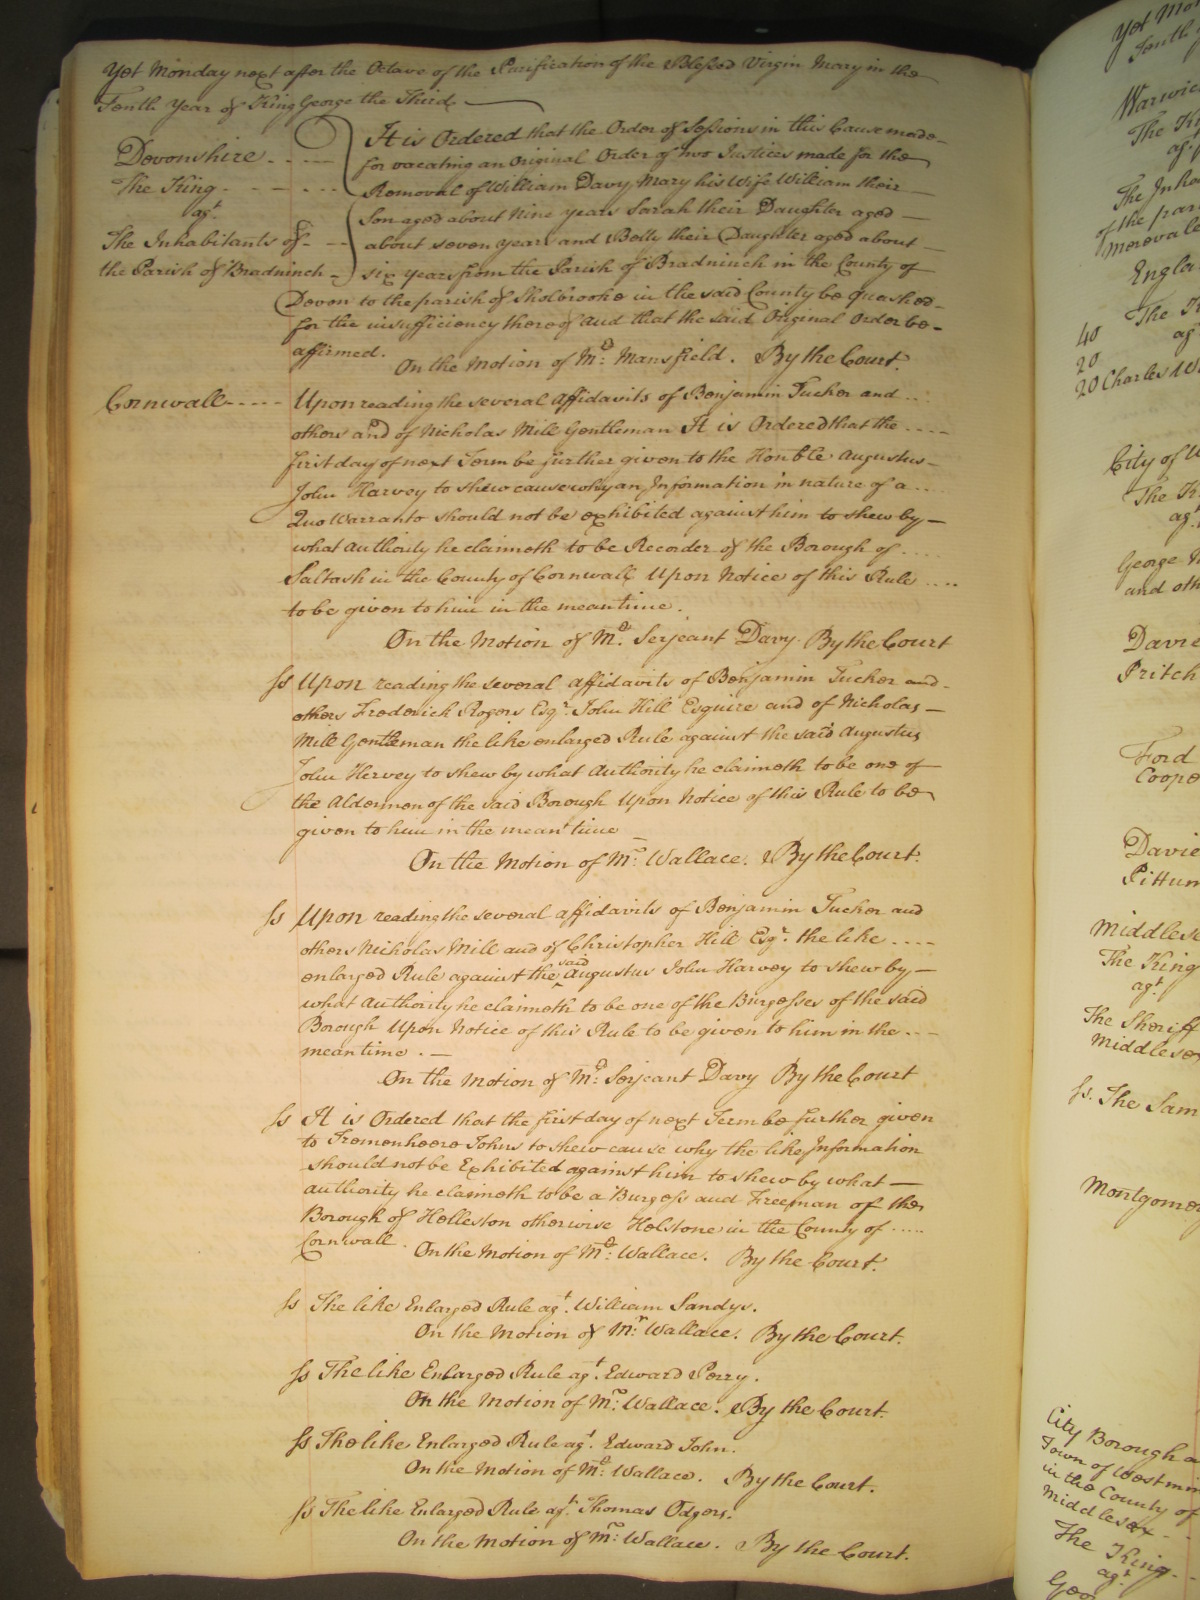 Yet Monday next after the Octave of the Purification of the Blessed Virgin Mary in the
Tenth Year of King George the Third
Devonshire
The King
agt
The Inhabitants of
the Parish of Bradninch
It is Ordered that the Order of Sessions in this Cause made
for vacating an Original Order of two Justices made for the
Removal of William Davy, Mary his Wife William their
Son aged about Nine years Sarah their Daughter aged
about seven years and Betty their Daughter aged about
six years from the Parish of Bradninch in the County of
Devon to the parish of Sholbrooke in the said County be quashed
for the insufficiency thereof And that the said Original Order be
affirmed.
On the Motion of Mr. Mansfield. By the Court.
Cornwall
Upon reading the several Affidavits of Benjamin Tucker and
others and of Nicholas Mill Gentleman It is Ordered that the
first day of next Term be further given to the Honble Augustus
John Harvey to shew cause why an Information in nature of a
Quo Warranto should not be exhibited against him to shew by
what Authority he claimeth to be Recorder of the Borough of
Saltash in the County of Cornwall Upon Notice of this Rule
to be given to him in the mean time.
On the Motion of Mr. Serjeant Davy. By the Court
Ss Upon reading the several Affidavits of Benjamin Tucker and
others Frederick Rogers Esqr. John Hill Esquire and of Nicholas
Mill Gentleman the like enlarged Rule against the said Augustus
John Hervey to shew by what Authority he claimeth to be one of
the Aldermen of the said Borough Upon Notice of this Rule to be
given to him in the mean time
On the Motion of Mr. Wallace. By the Court.
Ss Upon reading the several affidavits of Benjamin Tucker and
others Nicholas Mill and of Christopher Hill Esqr. the like
enlarged Rule against the said Augustus John Harvey to shew by
what Authority he claimeth to be one of the Burgesses of the said
Borough Upon Notice of this Rule to be given to him in the
mean time.
On the Motion of Mr. Serjeant Davy By the Court
Ss It is Ordered that the first day of next Term be further given
to Tremenheere Johns to shew cause why the like Information
should not be Exhibited against him to shew by what
authority he claimeth to be a Burgess and Freeman of the
Borough of Helleston otherwise Helstone in the County of
Cornwall.
On the Motion of Mr. Wallace. By the Court.
Ss The like Enlarged Rule agt. William Sandys.
On the Motion of Mr. Wallace. By the Court.
Ss The like Enlarged Rule agt. Edward Perry.
On the Motion of Mr. Wallace. By the Court.
Ss The like Enlarged Rule agt. Edward John.
On the Motion of Mr. Wallace. By the Court.
Ss The like Enlarged Rule agt. Thomas Odgers.
On the Motion of Mr. Wallace. By the Court.
Yet
The
agt
The
of the
Merevale
The
40
20
20 Charles
City of
The
agt
George
and
Ford
The King
agt.
The Sheriff
Middlesex
Ss. The
City Borough
Town of
in the County of
Middlesex
The King
agt